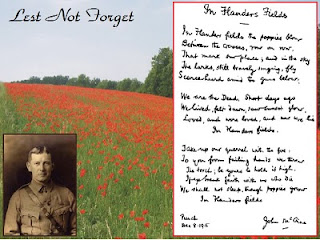 Lest Not Forget
In Flanders Fields
In Flanders fields the poppies blow
Between the crosses, row on row,
That mark our place; and in the sky
The larks, still bravely singing, fly
Scarce heard amid the guns below.
We are the Dead. Short days ago
We lived, felt dawn, saw sunset glow,
Loved, and were loved, and now we lie
In Flanders fields.
Take up our quarrel with the foe:
To you from failing hands we throw
The torch; be yours to hold it high.
If ye break faith with us who die
We shall not sleep, though poppies grow
In Flanders fields
Punch
Dec 8 1915
John McCrae